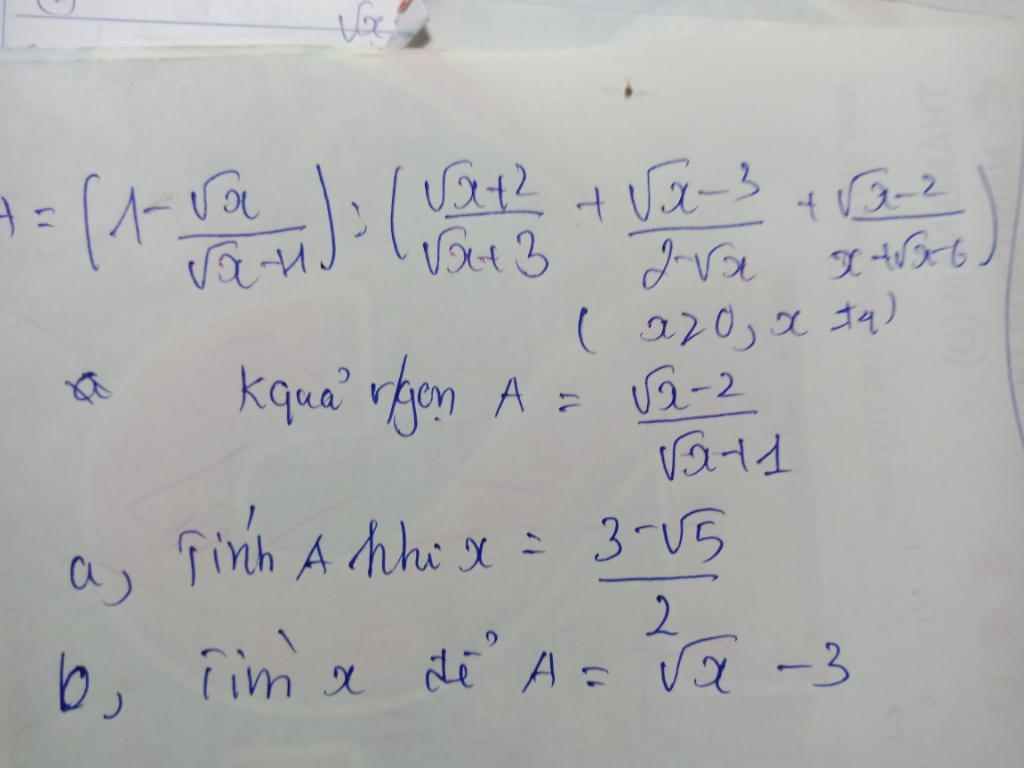 √x
A = (1 - √x / (√x+1)) : ((√x+2) / (√x+3) + (√x-3) / (2-√x) + (√x-2) / (x+√x-6))
( x≥0, x ≠4)
Kquả r/gọn A = (√x-2) / (√x+1)
a, Tính A khi x = (3-√5) / 2
b, Tìm x để A = √x -3